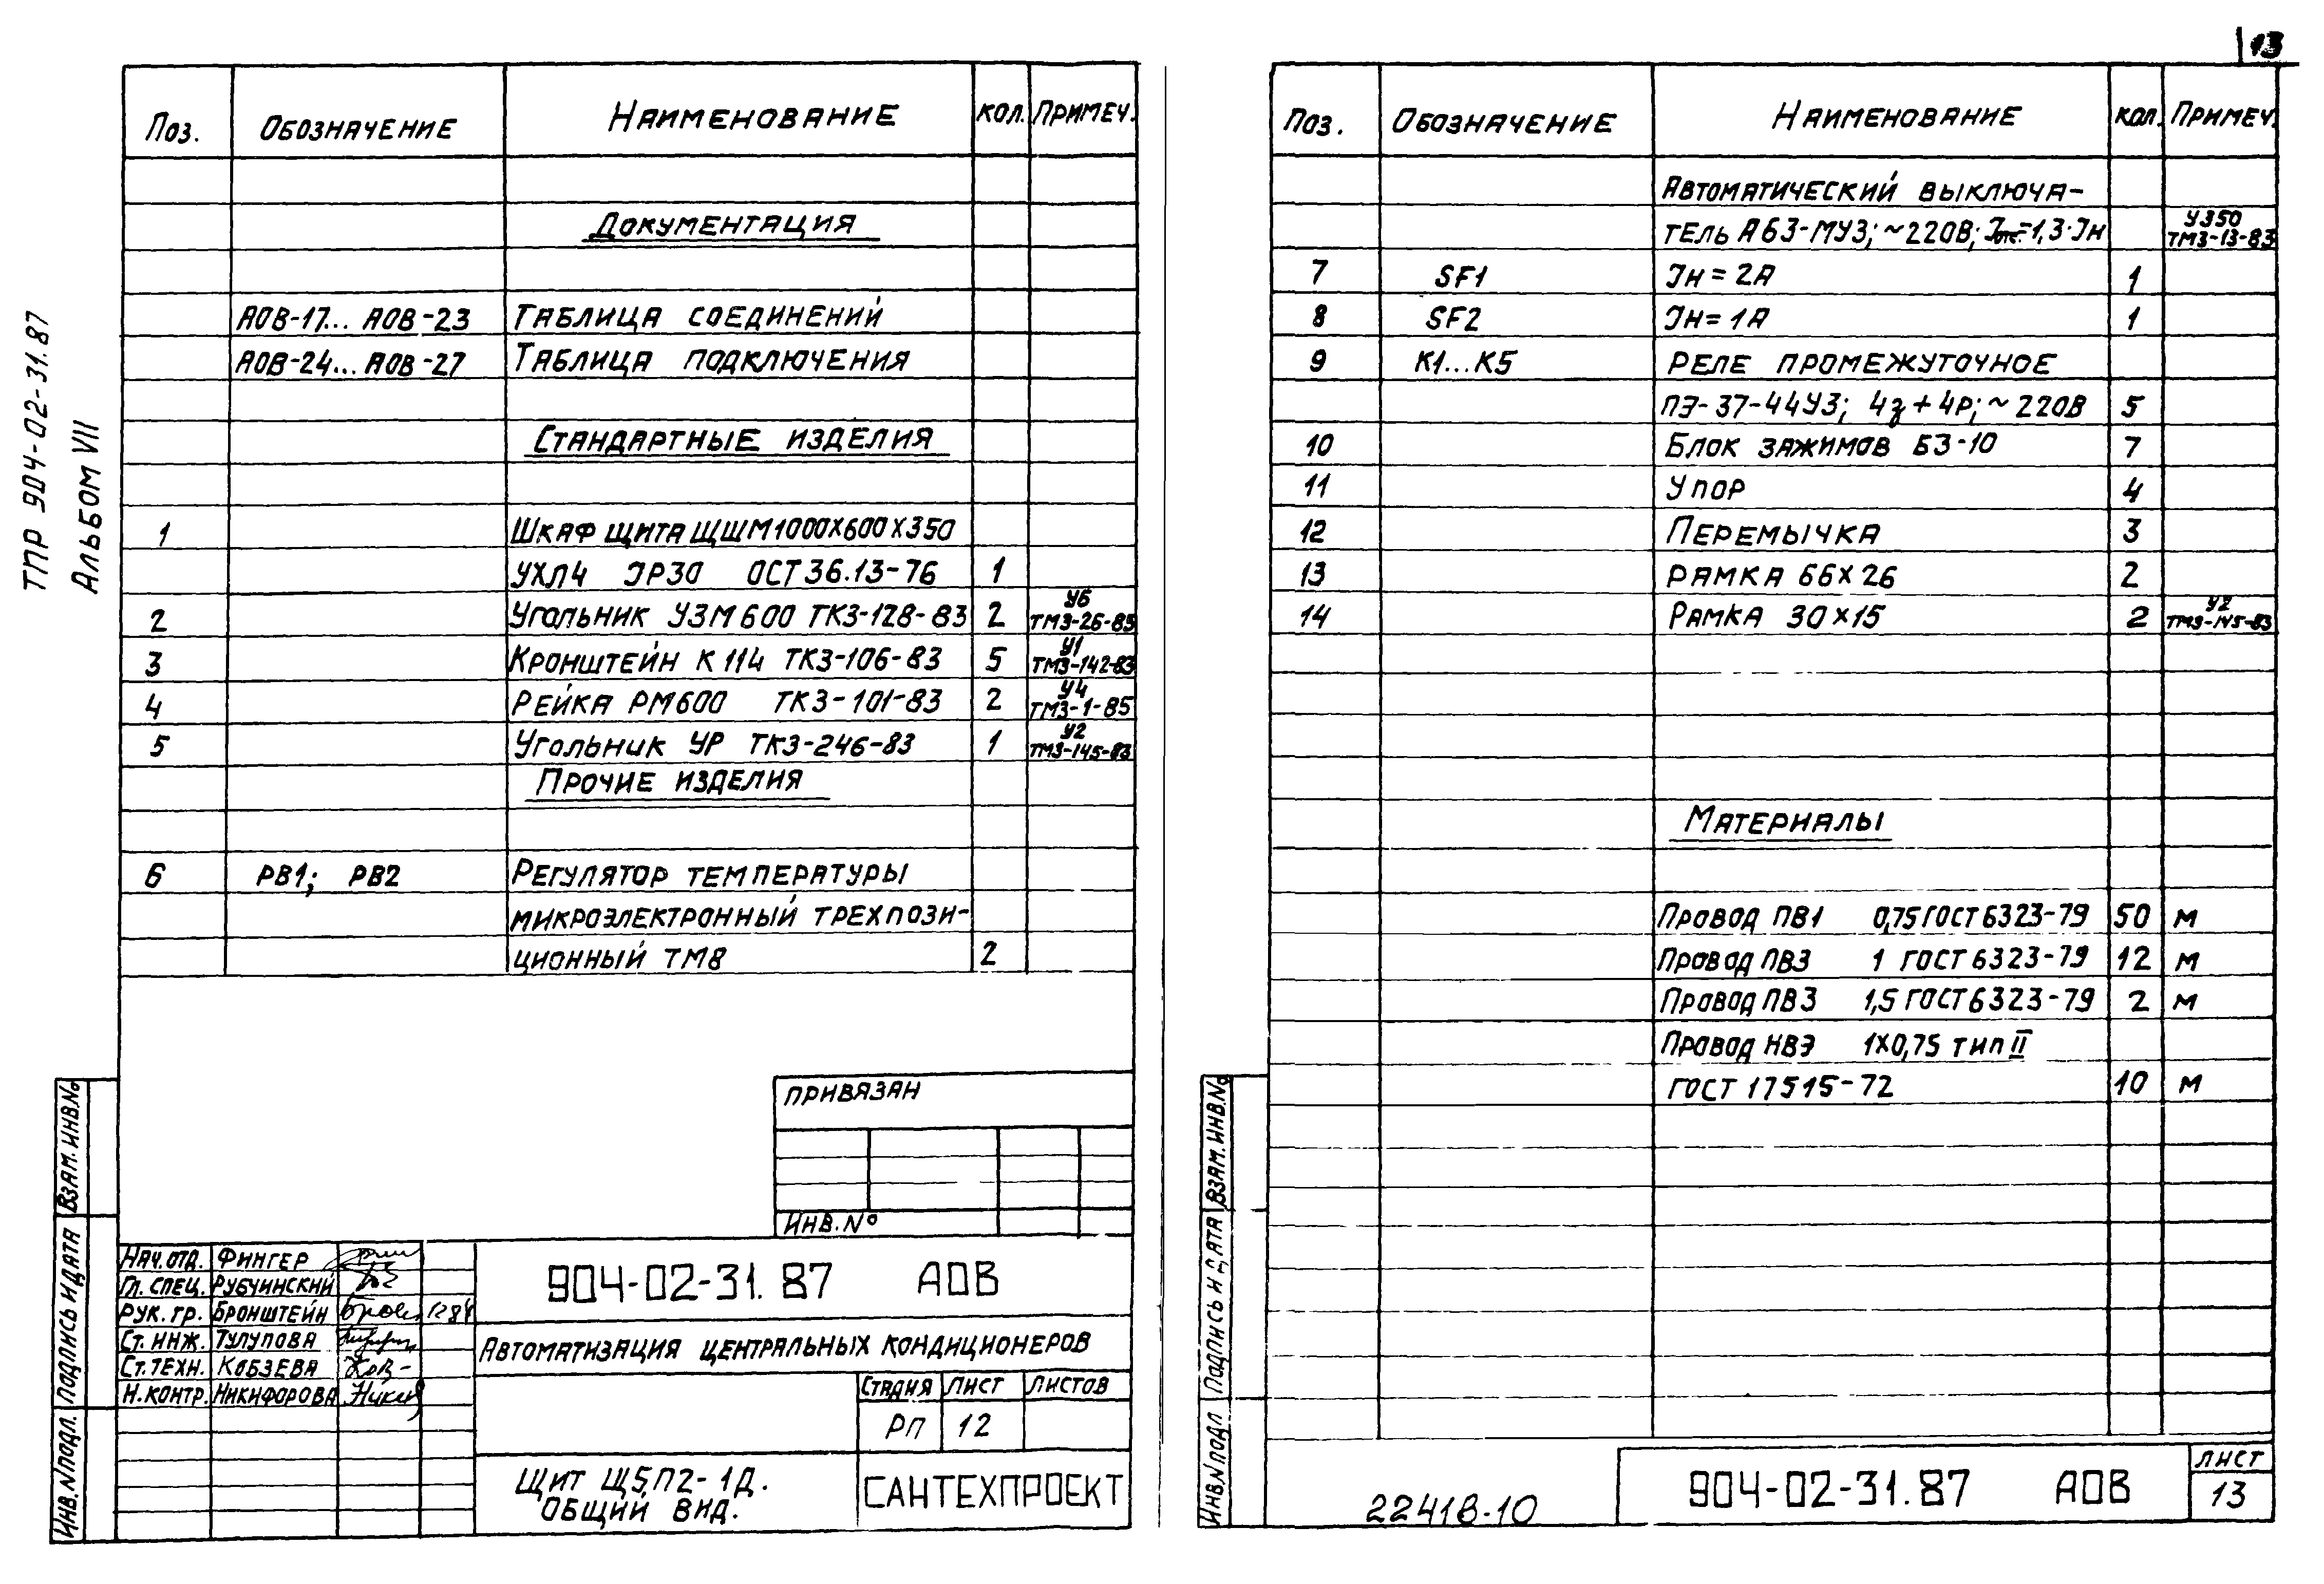 13
ТПР 904-02-31.87
Альбом VII
Поз. Обозначение Наименование кол. Примеч.
Документация
АОВ-17... АОВ-23 Таблица соединений
АОВ-24... АОВ-27 Таблица подключения
Стандартные изделия
1 Шкаф щита ЩШМ1000х600х350
УХЛ4 IР30 ОСТ 36.13-76 1
2 Угольник УЗМ600 ТК3-128-83 2 У6 ТМ3-26-85
3 Кронштейн К114 ТК3-106-83 5 У1 ТМ3-142-83
4 Рейка РМ600 ТК3-101-83 2 У4 ТМ3-1-85
5 Угольник УР ТК3-246-83 1 У2 ТМ3-145-83
Прочие изделия
6 РВ1; РВ2 Регулятор температуры
микроэлектронный трехпози-
ционный ТМ8 2
Привязан
Инв.№
Взам. инв.№
Подпись и дата
Инв.№подл.
Нач.отд. Фингер
Гл. спец. Рубчинский
Рук. гр. Бронштейн
Ст. инж. Тулупова
Ст. техн. Кобзева
Н.контр. Никифорова
904-02-31.87 АОВ
Автоматизация центральных кондиционеров
Стадия Лист Листов
РП 12
Щит Щ5П2-1Д.
Общий вид.
САНТЕХПРОЕКТ
Поз. Обозначение Наименование кол. Примеч.
Автоматический выключа-
тель А63-МУ3; ~220В; Iотс.=1,3·Iн У350 ТМ3-13-83
7 SF1 Iн = 2А 1
8 SF2 Iн = 1А 1
9 К1...К5 Реле промежуточное
ПЭ-37-44У3; 4з + 4р; ~220В 5
10 Блок зажимов БЗ-10 7
11 Упор 4
12 Перемычка 3
13 Рамка 66х26 2
14 Рамка 30х15 2 У2 ТМ3-145-83
Материалы
Провод ПВ1 0,75 ГОСТ 6323-79 50 м
Провод ПВ3 1 ГОСТ 6323-79 12 м
Провод ПВ3 1,5 ГОСТ 6323-79 2 м
Провод НВЭ 1х0,75 тип II
ГОСТ 17515-72 10 м
Взам. инв.№
Подпись и дата
Инв.№подл
22418-10
904-02-31.87 АОВ
Лист
13